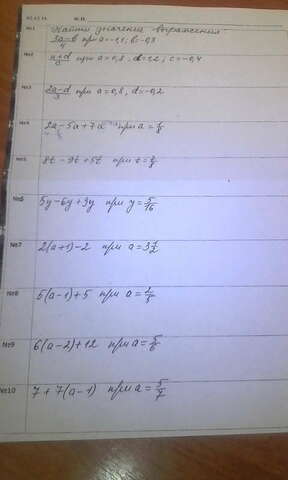 Найти значение выражения:
№1 3a-b/4 при a=-1,1, b=-0,3
№2 при a=0,8, d=1,2, c=-0,4
№3 2a-d/3 при a=0,8, d=-0,2
№4 2a-5a+7a при
№5 8t-9t+5t при
№6 5y-6y+3y при y=5/16
№7 2(a+1)-2 при
№8 5(a-1)+5 при
№9 6(a-2)+12 при a=5/6
№10 7+7(a-1) при a=5/7